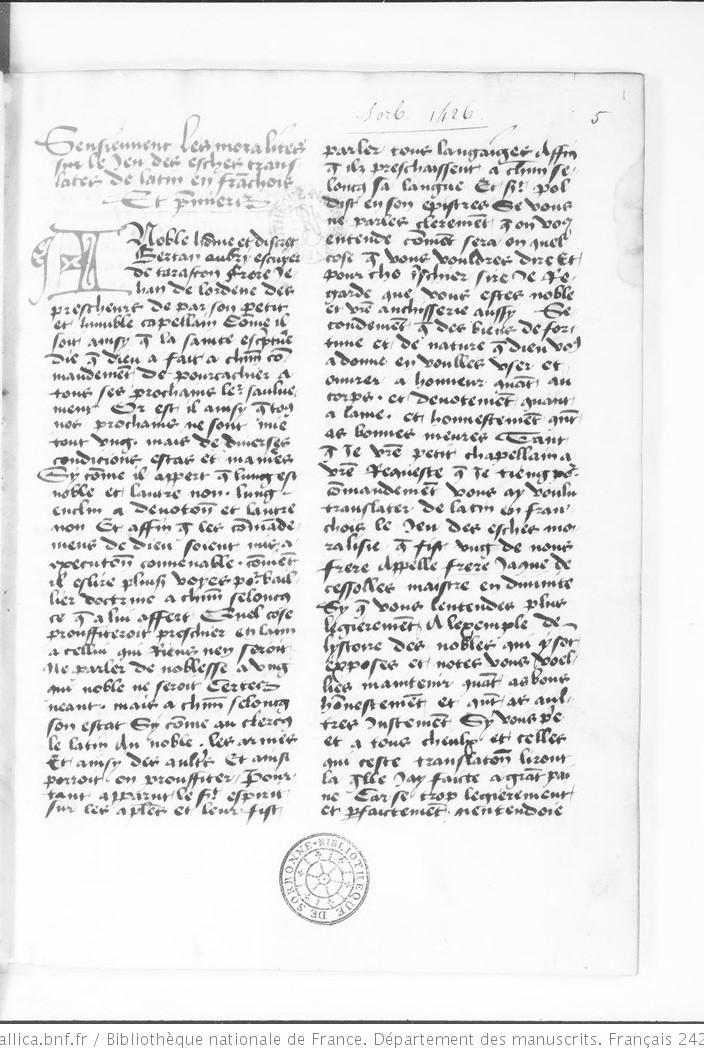 Sorb. 1426.
5
Sensieuvent les moralites
sur le Jeu des esches trans
lates de latin en franchois
Et p̄mierez
A Noble hōme et discret
Bertran aubry escuyer
de tarascon frere Je
han de
prescheurs de par son petit
et humble capellain Cōme il
soit ainsy q̄ la sainte escptūe
die q̄ dieu a fait a chūn cō
mandement de pourcachier a
tous ses prochains ler saulue
ment Or est il ainsy q̄ toꝰ
nos prochains ne sont mie
tout vng. mais de diuerses
condicions estas et manies
Sy cōme il appert q̄ lung est
noble et lautre non. lung
enclin a deuotion et lautre
non Et affin q̄ les cōmāde
mens de dieu soient mis a
execution conuenable. conuiēt
il eslire pluss voyes por bail
lier doctrine a chūn seloncq
ce q̄ a lui affert Quel cose
prouffiteroit preschier en latin
a cellui qui Riens nen seroit
Ne parler de noblesse a vng
qui noble ne seroit Certez
neant. mais a chūn seloncq
son estat Sy cōme au clercq
le latin Au noble. les armes
Et ainsy des aultr̄s Et ainsi
porroit on prouffiter. Pour
tant apparut le st esperit
sur les aplēs et leur fist
parler tous langaiges Affin
q̄ ilz preschaissent a chūn se
loncq sa langue Et st pol
dist en son epistres Se vous
ne parles clerement q̄ on voꝰ
entende cōmēt sera on quel
cose q̄ vous vouldres dire Et
pour cho tschier sire Je Re
garde que vous estes noble
et vr̄e anchisserie aussy Se
condemēt q̄ des biens de for
tune et de nature q̄ dieu voꝰ
a donne en voulles vser et
ouurer a honneur quāt au
corps. et deuotement quant
a lame. et honnestement qūt
as bonnes meurs Tant
q̄ Je vr̄e petit chappellain a
vr̄e Requeste q̄ Je tieng por
cōmandement vous ay voulu
translater de latin en fran
chois le Jeu des esches mo
ralisie q̄ fist vng de nous
frere Appelle frere Jaque de
cessolles maistre en diuinite
Sy q̄ vous lentendes plus
legierement A lexemple de
lystoire des nobles qui y sōt
exposes et notes vous voel
lies maintenir quāt as bons
hōnestement et qūt as aul
tres Justement Sy vous p̄e
et a tous cheulx et celles
qui ceste translation liront
la q̄lle Jay faicte a grāt pai
ne Car se trop legierement
et pfaictement. nentendoie
BIBLIOTHEQUE DE SORBONNE
allica.bnf.fr / Bibliothèque nationale de France. Département des manuscrits. Français 242